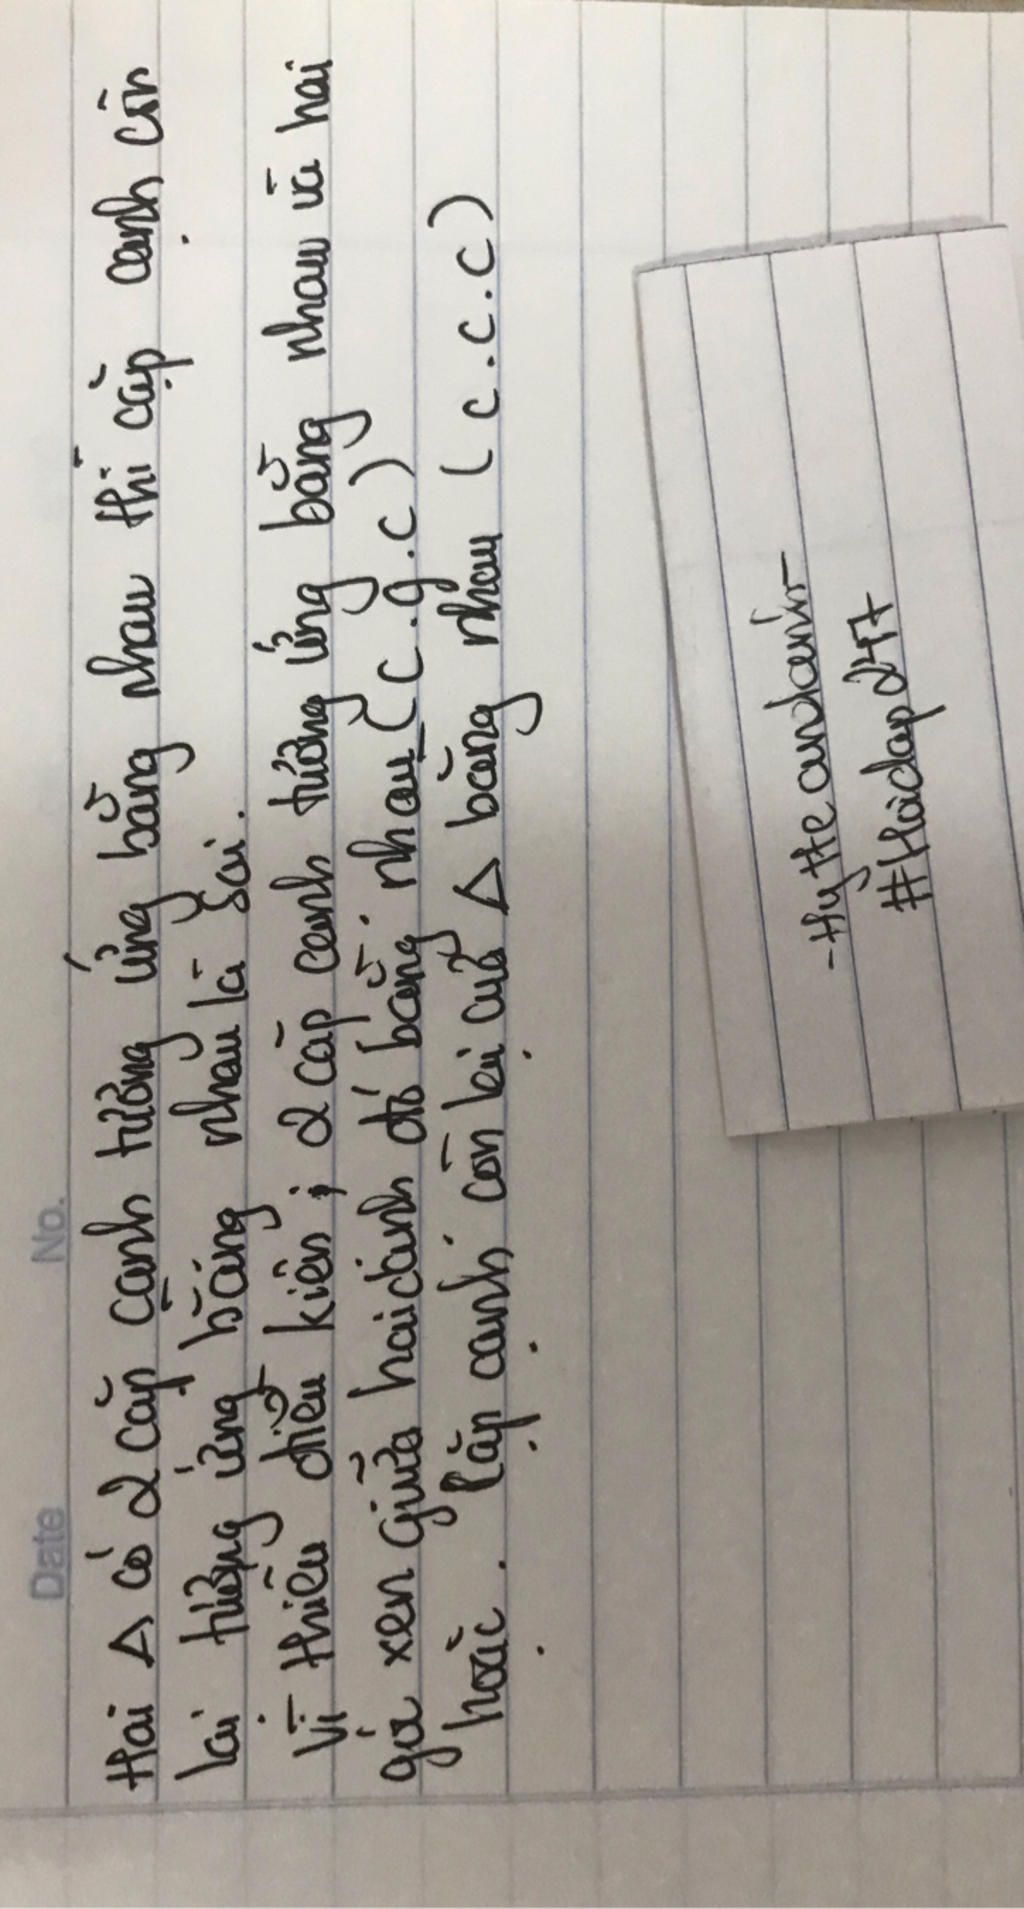 Date No.
Hai Δ có 2 cặp cạnh tương ứng bằng nhau thì cặp cạnh còn
lại tương ứng bằng nhau là sai.
Vì thiếu điều kiện ; 2 cặp cạnh tương ứng bằng nhau và hai
góc xen giữa hai cạnh đó bằng nhau (c.g.c)
hoặc . cặp cạnh còn lại của Δ bằng nhau (c.c.c)
#Hoidap247